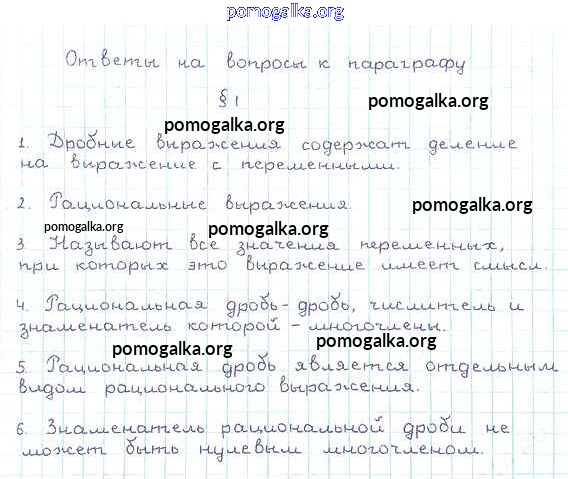 pomogalka.org
Ответы на вопросы к параграфу
§ 1
pomogalka.org
pomogalka.org
1. Дробные выражения содержат деление
на выражение с переменными.
2. Рациональные выражения.
pomogalka.org
pomogalka.org pomogalka.org
3. Называют все значения переменных,
при которых это выражение имеет смысл.
4. Рациональная дробь - дробь, числитель и
знаменатель которой - многочлены.
pomogalka.org pomogalka.org
5. Рациональная дробь является отдельным
видом рационального выражения.
pomogalka.org
6. Знаменатель рациональной дроби не
может быть нулевым многочленом.